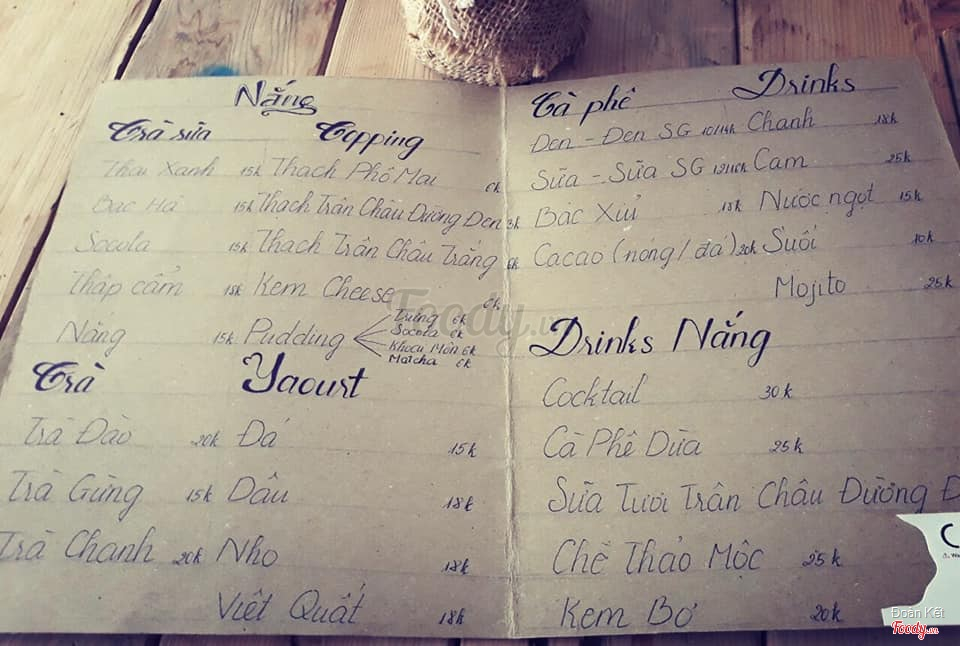 Nắng
Trà sữa
Thái Xanh 15k
Bạc Hà 15k
Socola 15k
Thập cẩm 18k
Nắng 15k
Topping
Thạch Phô Mai 6k
Thạch Trân Châu Đường Đen 3k
Thạch Trân Châu Trắng 6k
Kem Cheese 6k
Pudding
Trứng 6k
Socola 6k
Khoai Môn 6k
Matcha 6k
Trà
Trà Đào 20k
Trà Gừng 15k
Trà Chanh 20k
Yaourt
Đá 15k
Dâu 18k
Nho 18k
Việt Quất 18k
Cà phê
Đen - Đen SG
Sữa - Sữa SG
Bạc Xỉu 18k
Cacao (nóng/đá) 20k
Drinks
Chanh 18k
Cam 25k
Nước ngọt 15k
Suối 10k
Mojito 25k
Drinks Nắng
Cocktail 30k
Cà Phê Dừa 25k
Sữa Tươi Trân Châu Đường Đ
Chè Thảo Mộc 25k
Kem Bơ 20k
Foody.vn
Đoàn Kết
Foody.vn